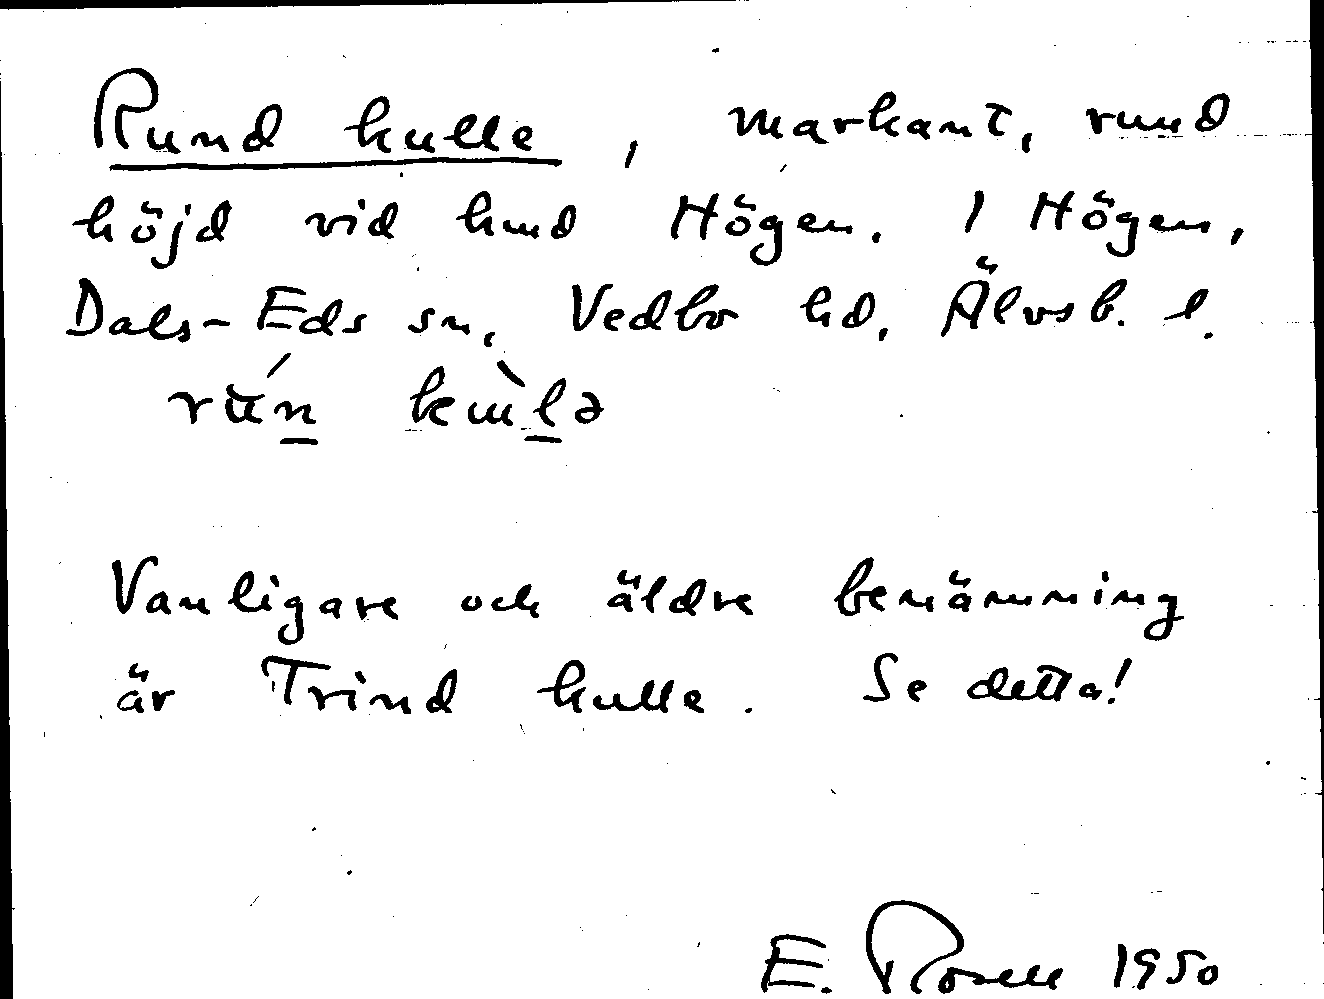 Rund kulle, markant, rund
höjd vid hmd Högen. 1 Högen,
Dals-Eds sn, Vedbo hd, Älvsb. l.
Vanligare och äldre benämning
är Trind kulle. Se detta!
E. Rosell 1950